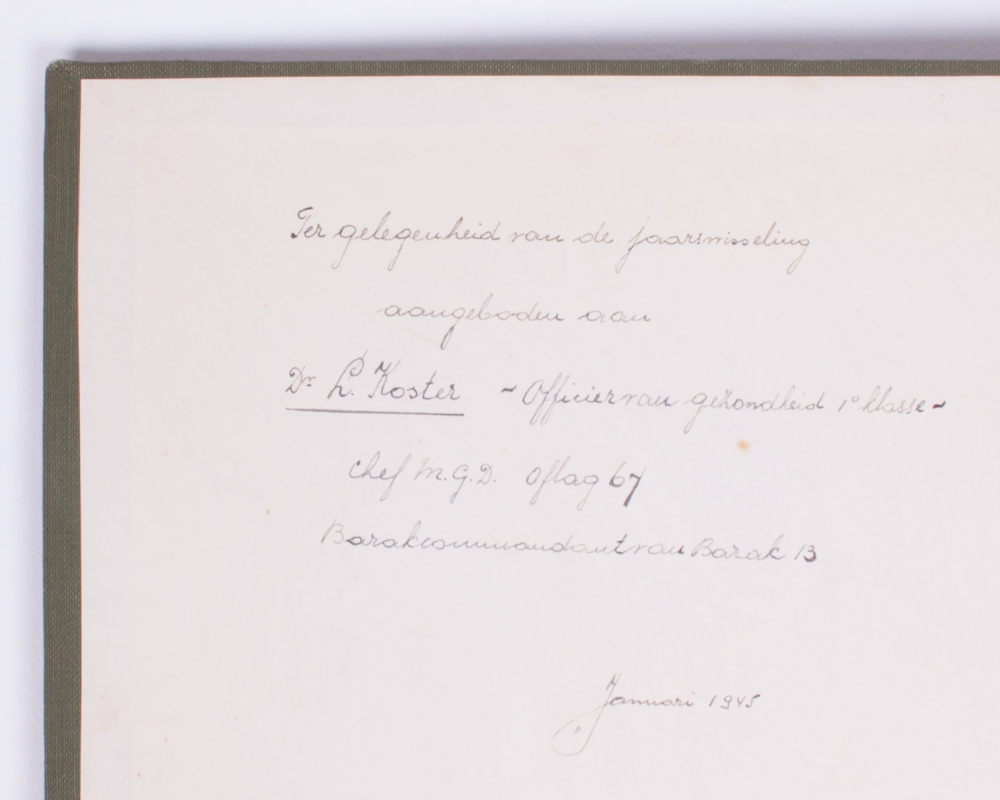 Ter gelegenheid van de jaarswisseling
aangeboden aan
Dr L. Koster ~ Officier van gezondheid 1e klasse ~
chef M.G.D. Oflag 67
Barakcommandant van Barak 13
Januari 1945